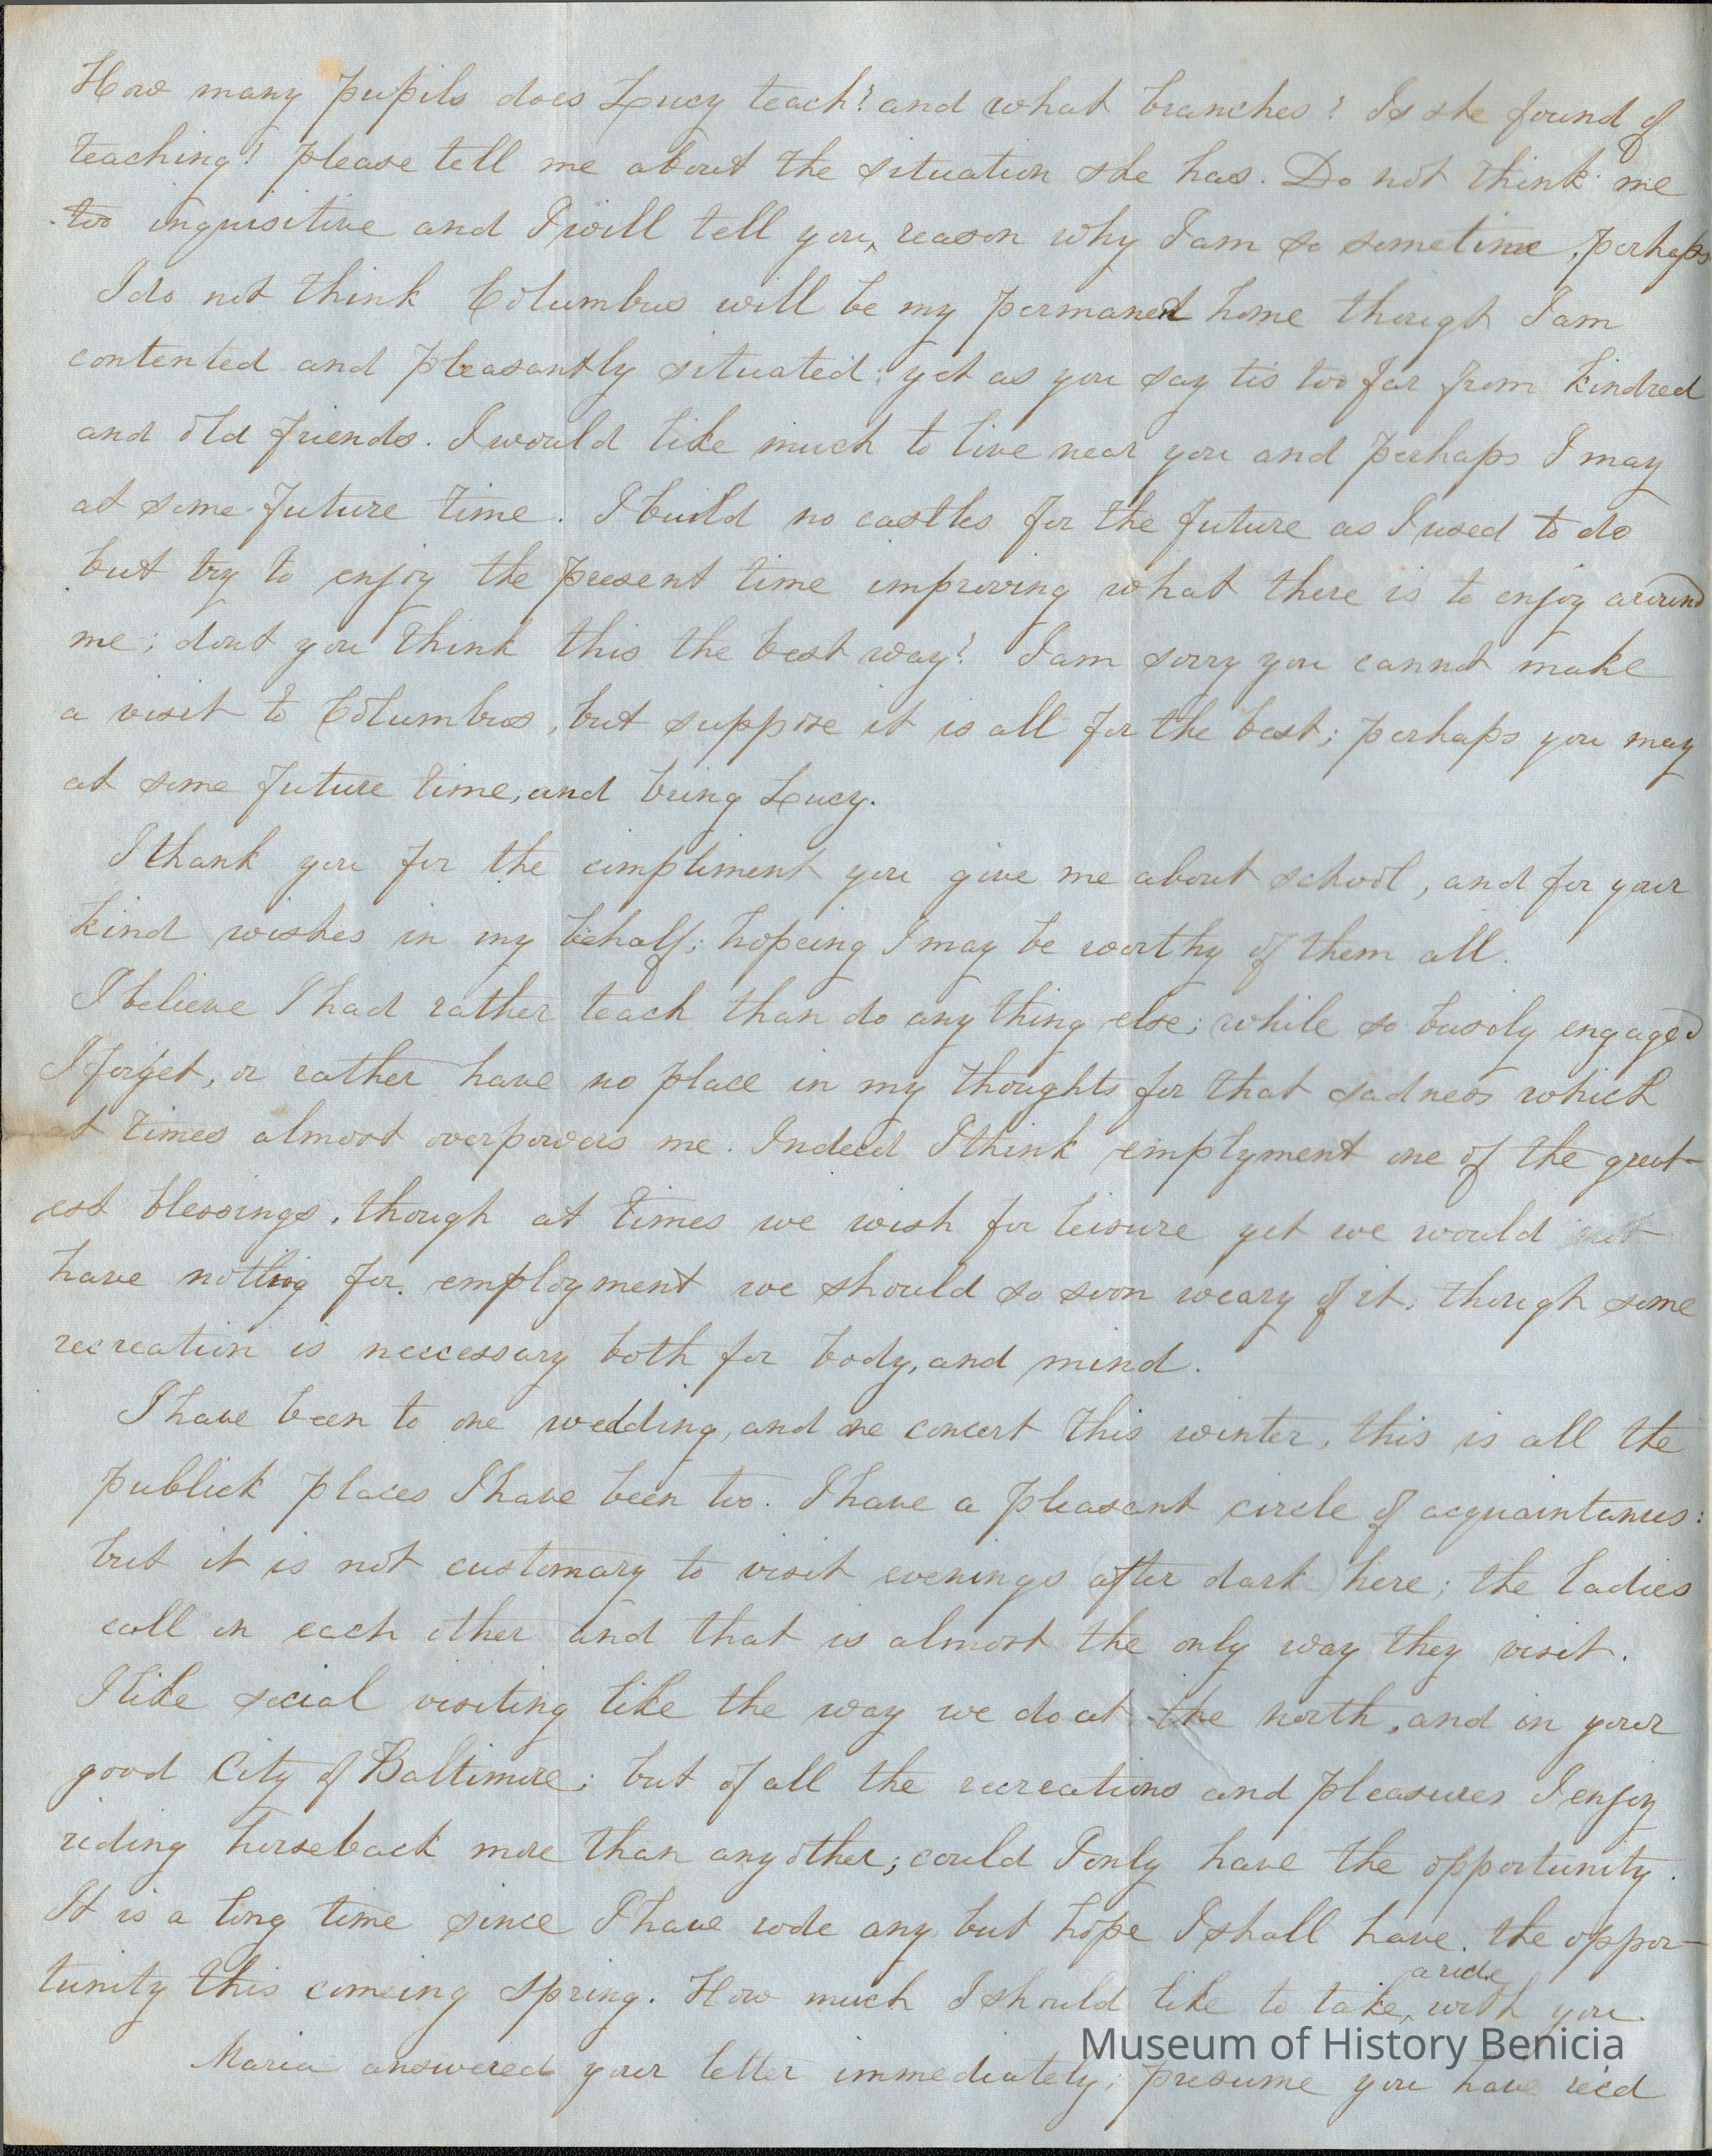 How many pupils does Lucy teach? and what branches? Is she found of
teaching? please tell me about the situation she has. Do not think me
too inquisitive and I will tell you‸ reason why I am so sometime, perhaps
I do not think Columbus will be my permanent home though I am
contented and pleasantly situated; yet as you say tis too far from kindred
and old friends. I would like much to live near you and perhaps I may
at some future time. I build no castles for the future as I used to do
but try to enjoy the present time improving what there is to enjoy around
me; dont you think this the best way? I am sorry you cannot make
a visit to Columbus, but suppose it is all for the best; perhaps you may
at some future time, and bring Lucy.
I thank you for the compliment you give me about school, and for your
kind wishes in my behalf; hopeing I may be worthy of them all.
I believe I had rather teach than do any thing else; while so busily engaged
I forget, or rather have no place in my thoughts for that sadness which
at times almost overpowers me. Indeed I think employment one of the great-
est blessings, though at times we wish for leisure yet we would not
have nothing for employment we should so soon weary of it; though some
recreation is neccessary both for body, and mind.
I have been to one wedding, and one concert this winter, this is all the
publick places I have been too. I have a pleasant circle of acquaintances:
but it is not customary to visit evenings (after dark) here; the ladies
call on each other and that is almost the only way they visit.
I like social visiting like the way we do at the north, and in your
good City of Baltimore; but of all the recreations and pleasures I enjoy
riding horseback more than any other; could I only have the opportunity.
It is a long time since I have rode any but hope I shall have the oppor-
tunity this comeing spring. How much I should like to take‸ a ride with you
Maria answered your letter immediately; presume you have recd
Museum of History Benicia